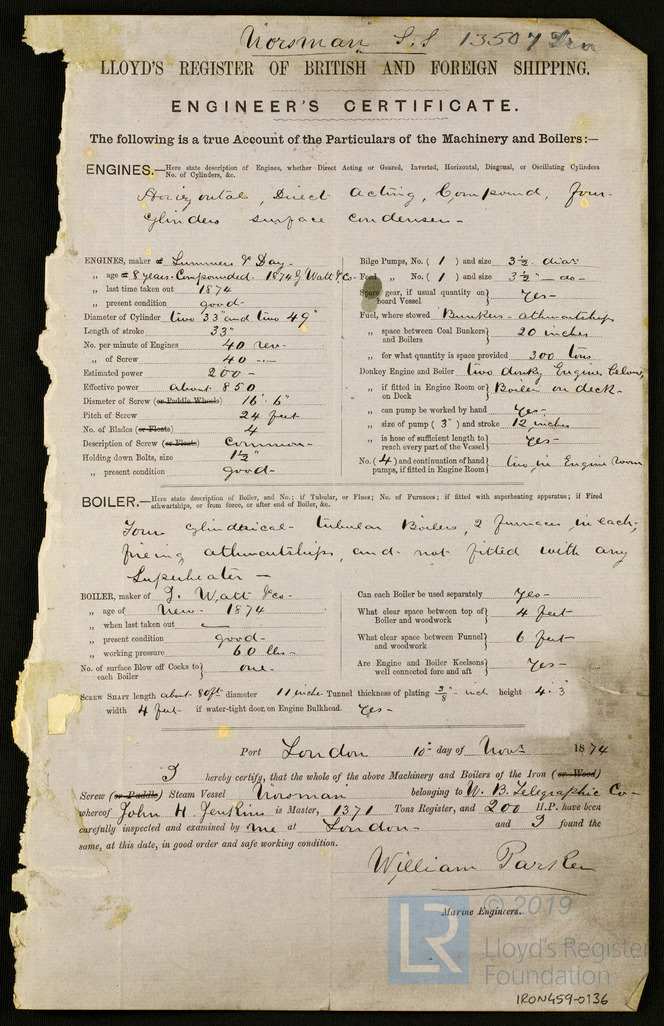 "Norsman" S.S 13507 Iron
LLOYD'S REGISTER OF BRITISH AND FOREIGN SHIPPING.
ENGINEER'S CERTIFICATE.
The following is a true Account of the Particulars of the Machinery and Boilers:—
ENGINES.—Here state description of Engines, whether Direct Acting or Geared, Inverted, Horizontal, Diagonal, or Oscillating Cylinders
No. of Cylinders, &c.
Horizontal, Direct Acting, Compound, four
Cylinders surface condenser—
ENGINES, maker Summers & Day—
„ age 8 years. Compounded 1874 J Watt & Co—
„ last time taken out 1874
„ present condition good—
Diameter of Cylinder two 33" and two 49"
Length of stroke 33"
No. per minute of Engines 40 rev—
„ of Screw 40 —
Estimated power 200 —
Effective power about 850
Diameter of Screw (or Paddle Wheels) 16' 6"
Pitch of Screw 24 feet
No. of Blades (or Floats) 4
Description of Screw (or Floats) Common—
Holding down Bolts, size 1½"
„ present condition good—
Bilge Pumps, No. (1) and size 3½ diar
Feed „ No. (1) and size 3½" — do—
Spare gear, if usual quantity on board Vessel} Yes—
Fuel, where stowed Bunkers— athwartships
„ space between Coal Bunkers and Boilers} 20 inches
„ for what quantity is space provided 300 tons
Donkey Engine and Boiler two donky Engines below,
„ if fitted in Engine Room or on Deck} Boiler on deck—
„ can pump be worked by hand Yes—
„ size of pump (3") and stroke 12 inches
„ is hose of sufficient length to reach every part of the Vessel} Yes—
No. (4) and continuation of hand pumps, if fitted in Engine Room} two in Engine room
BOILER.—Here state description of Boiler, and No.; if Tubular, or Flues; No. of Furnaces; if fitted with superheating apparatus; if Fired
athwartships, or from force, or after end of Boiler, &c.
Four Cylindrical— tubular Boilers, 2 furnaces in each,
fireing athwartships, and not fitted with any
Superheater —
BOILER, maker of J. Watt & Co—
„ age of New— 1874
„ when last taken out —
„ present condition good—
„ working pressure 60 lbs—
No. of surface Blow off Cocks to each Boiler} one—
Can each Boiler be used separately Yes—
What clear space between top of Boiler and woodwork} 4 feet
What clear space between Funnel and woodwork} 6 feet
Are Engine and Boiler Keelsons well connected fore and aft} Yes—
SCREW SHAFT length about 80ft diameter 11 inches Tunnel thickness of plating 3/8"— inch height 4.3
width 4 feet if water-tight door on Engine Bulkhead. Yes—
Port London 10th day of Novr 1874
I hereby certify, that the whole of the above Machinery and Boilers of the Iron (or Wood)
Screw (or Paddle) Steam Vessel Norsman belonging to W. B. Telegraphic Co—
whereof John H. Jenkins is Master, 1371 Tons Register, and 200 H.P. have been
carefully inspected and examined by me at London— and I found the
same, at this date, in good order and safe working condition.
William Parker
Marine Engineers.
LR
© 2019
Lloyd's Register
Foundation
IRON459-0136